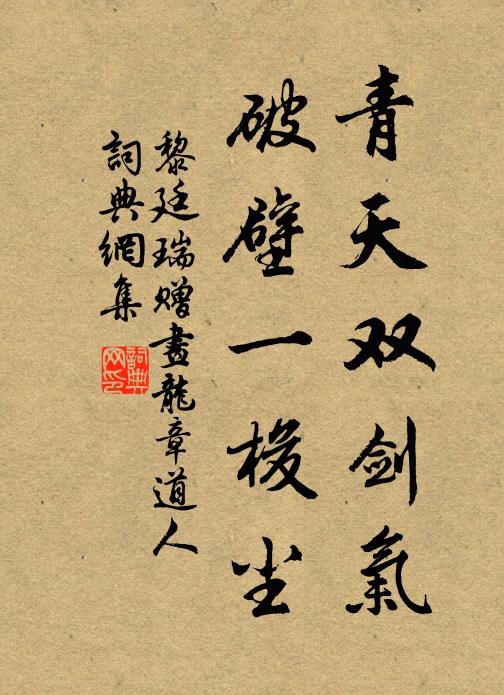 青天双剑氣
破壁一梭尘
黎廷瑞赠畫龍章道人
詞典網集
詞典網印